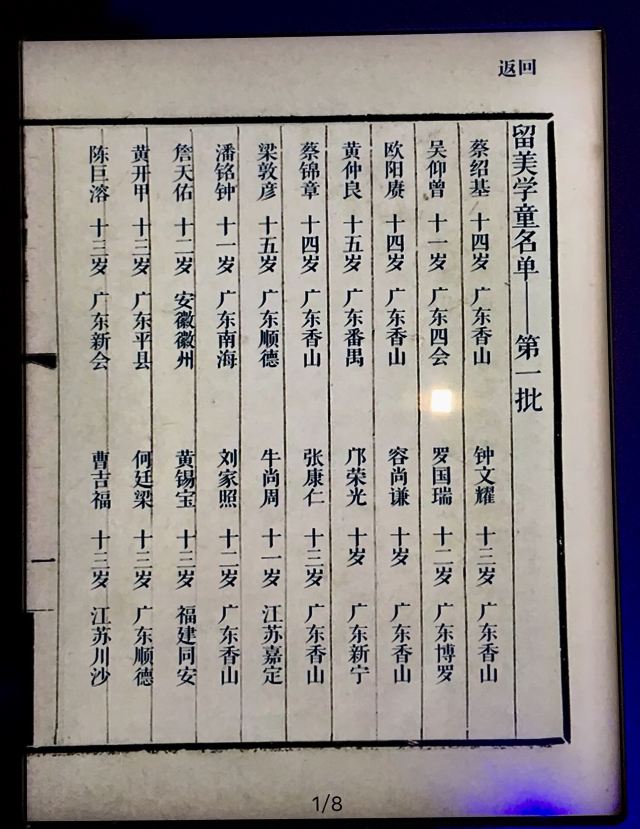 返回
留美学童名单——第一批
蔡绍基 十四岁 广东香山 钟文耀 十三岁 广东香山
吴仰曾 十一岁 广东四会 罗国瑞 十二岁 广东博罗
欧阳赓 十四岁 广东香山 容尚谦 十岁 广东香山
黄仲良 十五岁 广东番禺 邝荣光 十岁 广东新宁
蔡锦章 十四岁 广东香山 张康仁 十三岁 广东香山
梁敦彦 十五岁 广东顺德 牛尚周 十一岁 江苏嘉定
潘铭钟 十一岁 广东南海 刘家照 十二岁 广东香山
詹天佑 十二岁 安徽徽州 黄锡宝 十三岁 福建同安
黄开甲 十三岁 广东平县 何廷梁 十三岁 广东顺德
陈巨溶 十三岁 广东新会 曹吉福 十三岁 江苏川沙
一
1/8